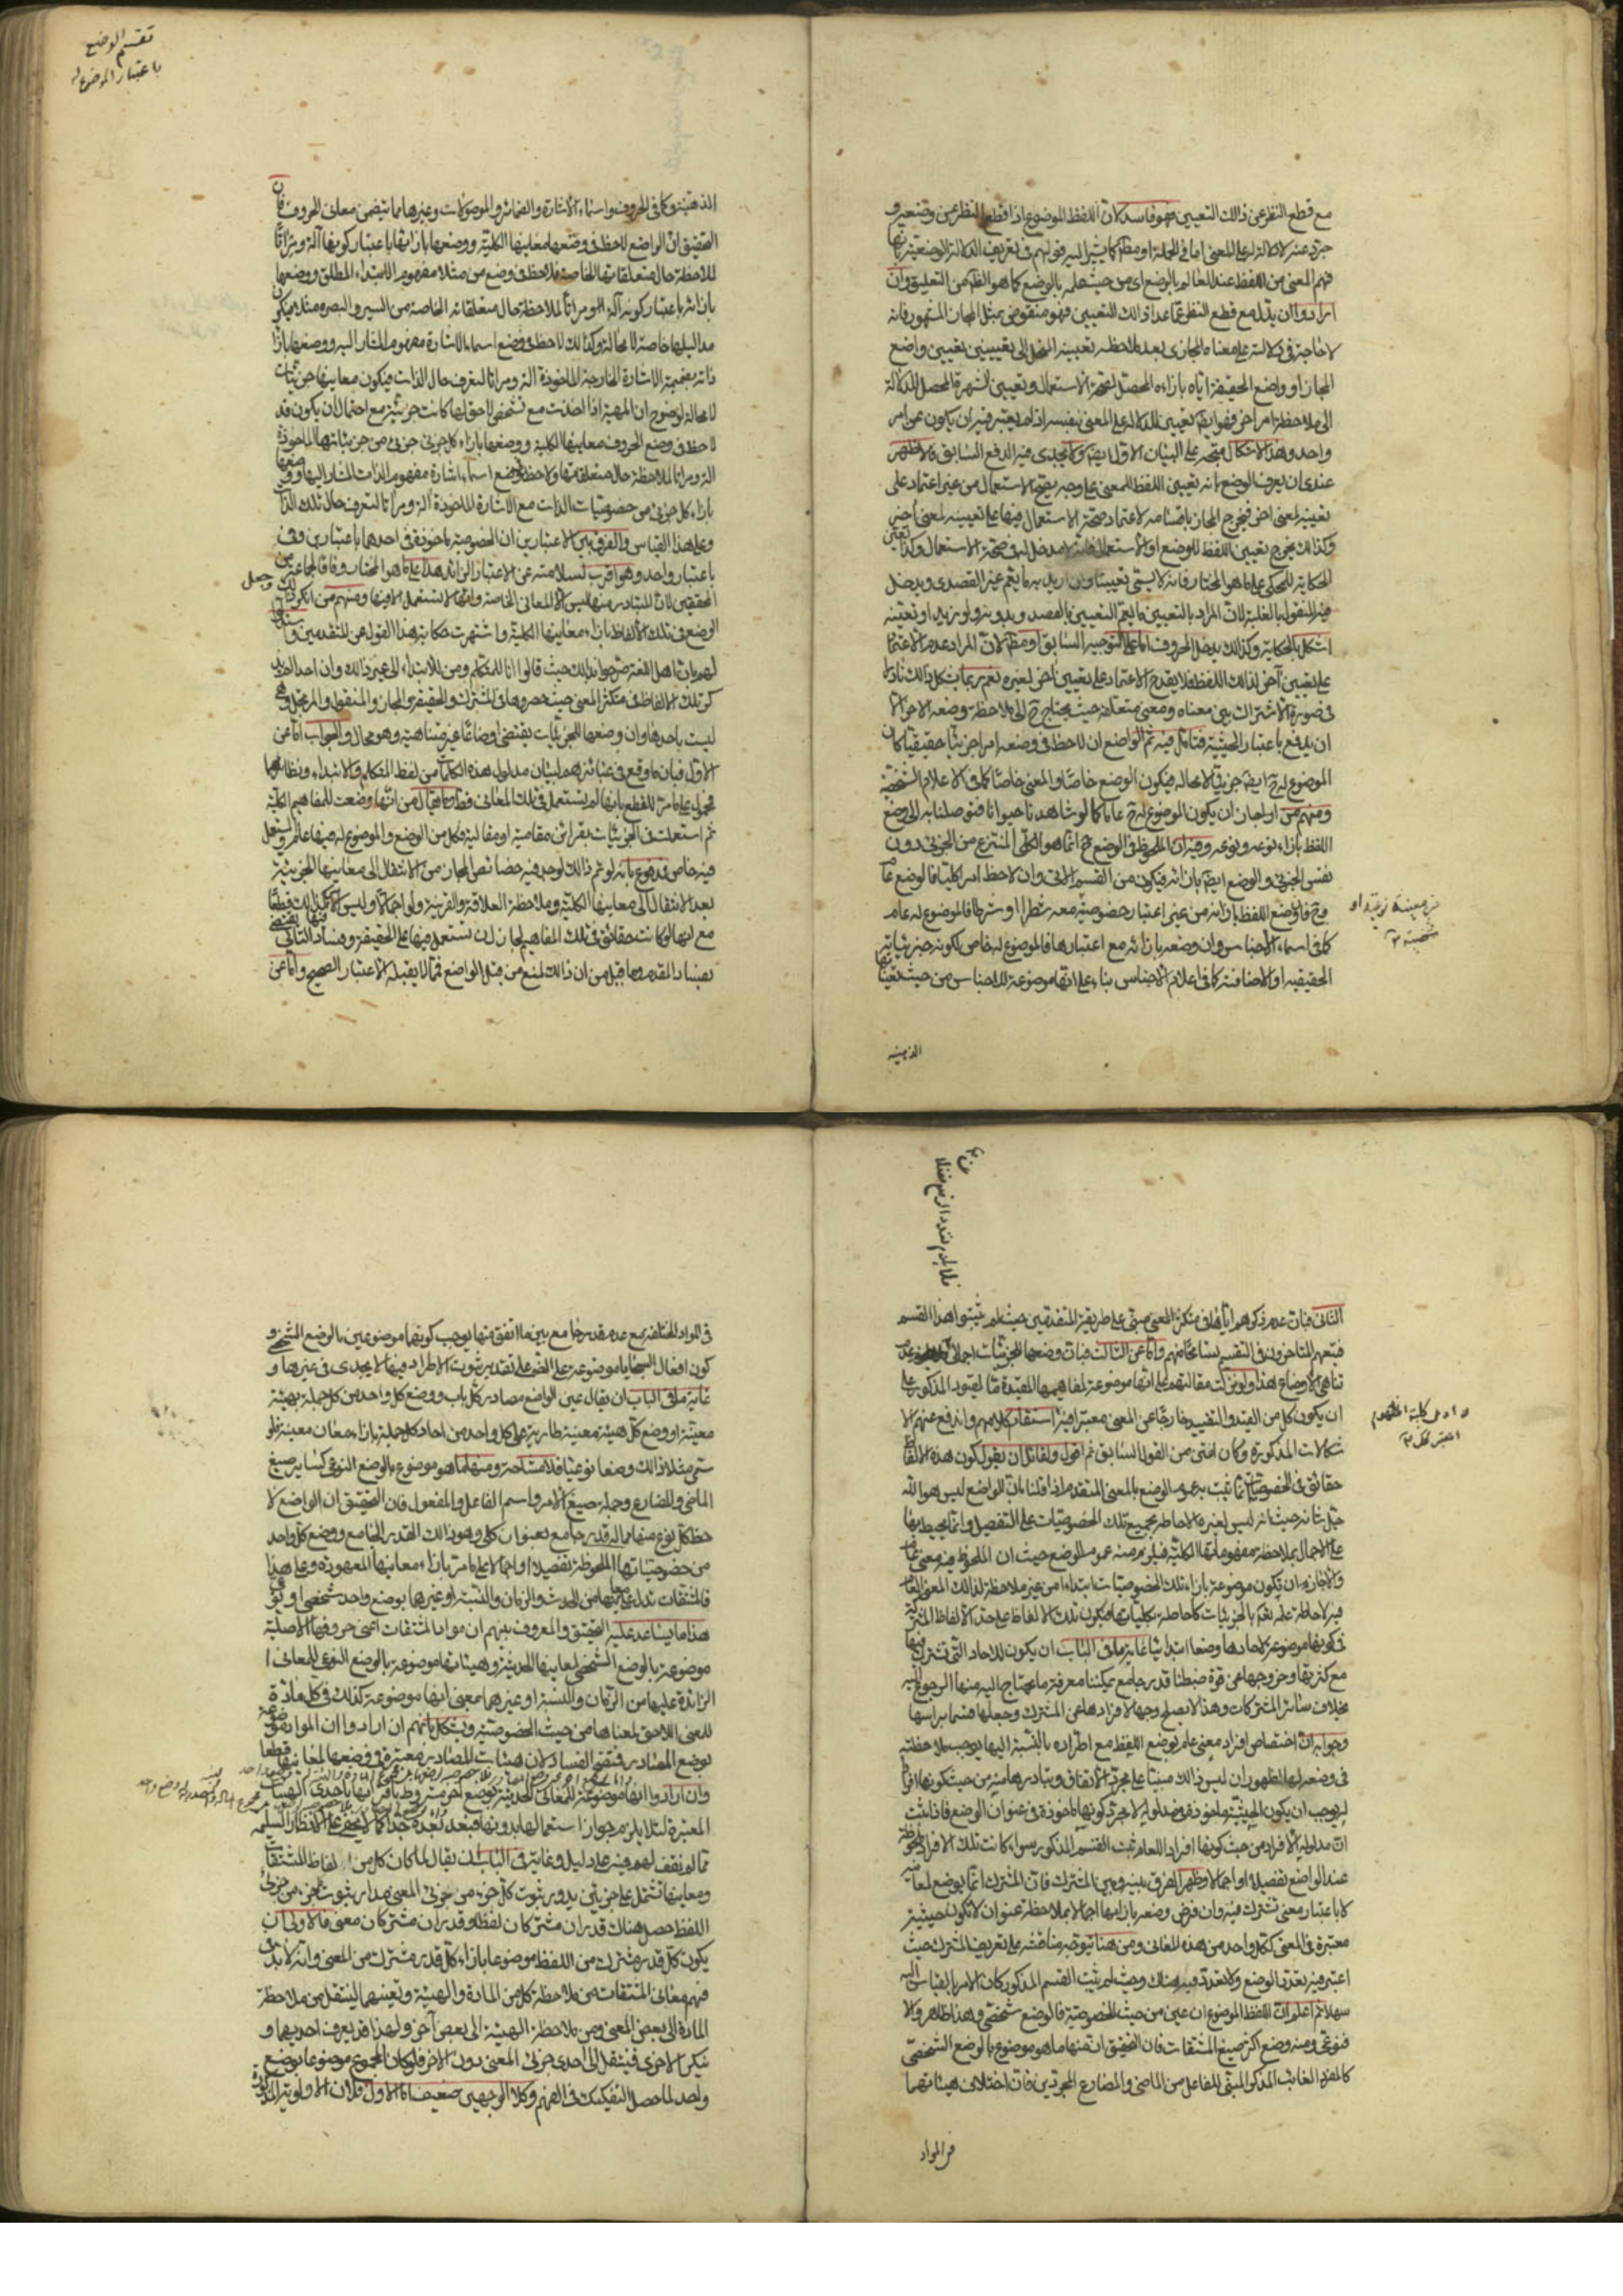 مع قطع النظر عن ذالك التعيين فهو فاسد لان اللفظ الموضوع اذا قطع النظر عن وضعه و
جرد عنه لا دلالة له على المعنى اما فى الجملة او مطلقا كما يشير اليه قولهم فى تعريف الدلالة الوضعية بانها
فهم المعنى من اللفظ عند العالم بالوضع اى من حيث علمه بالوضع كما هو الظاهر من التعليق وان
ارادوا ان يدل مع قطع النظر عما عدا ذالك التعيين فهو منقوض بمثل المجاز المشهور فانه
لا حاجة فى دلالته على معناه المجازى بعد ملاحظة تعيينه المنحل الى تعيينين تعيين واضع
المجاز او واضع الحقيقة اياه بازاءه المحصل لصحة الاستعمال وتعيين الشهرة المحصل للدلالة
الى ملاحظة امر اخر فهو ايضا تعيين للدلالة على المعنى بنفسه اذ لم يعتبر فيه ان يكون عن امر
واحد وهذا الاشكال متجه على البيان الاول ايضا ولا يجدى فيه الدفع السابق فالاظهر
عندى ان يعرف الوضع بانه تعيين اللفظ للمعنى على وجه يصح الاستعمال من غير اعتماد على
تعيينه لمعنى اخر فيخرج المجاز باقسامه لاعتماد صحة الاستعمال فيها على تعيينه لمعنى اخر
وكذالك يخرج تعيين اللفظ للوضع او الاستعمال فانه لا مدخل له فى صحة الاستعمال وكذا تعيين
الحكاية للمحكى على ما هو المختار فانه لا يسمى تعيينا وان اريد به ما يعم غير القصدى ويدخل
فيه المنقول بالغلبة لان المراد بالتعيين ما يعم التعيين بالقصد وبدونه ولو بزيد او تعينه
اشكل بالحكاية وكذالك يدخل الحروف اما على التوجيه السابق او مطلقا لان المراد عدم الاعتماد
على تعيين آخر لذالك اللفظ فلا يقدح الاعتماد على تعيين اخر لغيره نعم ربما يشكل ذالك نادرا
فى صورة الاشتراك بين معناه ومعنى متعلقه حيث يحتاج ح الى ملاحظة وضعه الاخر الا
ان يدفع باعتبار الحيثية فتامل فيه ثم الواضع ان لاحظ فى وضعه امرا جزئيا حقيقيا كان
الموضوع له ح ايضا جزئيا لا محاله فيكون الوضع خاصا والمعنى خاصا كما فى الاعلام الشخصية
ومنهم من اجاز ان يكون الموضوع له ح عاما كما لو شاهدنا حيوانا فتوصلنا به الى وضع
اللفظ بازاء نوعه ونوعه وفيه ان الملحوظ فى الوضع ح انما هو الكلى المنتزع من الجزئى دون
نفس الجزئى والوضع ايضا بازائه فيكون من القسم الاتى وان لاحظ امرا كليا فالوضع عام
وح فان وضع اللفظ بازائه من غير اعتبار خصوصية معه شطرا او شرطا فالموضوع له عام
كما فى اسماء الاجناس وان وضعه بازائه مع اعتبارها فالموضوع له خاص لكونه جزئياته
الحقيقيه او الاضافية كما فى اعلام الاجناس بناء على انها موضوعة للاجناس من حيث تعينها
الذهنيه
تقسيم الوضع
باعتبار الموضوع له
الذهنية وكما فى الحروف واسماء الاشارة والضمائر والموصولات وغيرها مما يتضمن معانى الحروف فان
التحقيق ان الواضع لاحظ فى وضعها معانيها الكلية ووضعها بازائها باعتبار كونها آلة ومراتا
لملاحظة حال متعلقاتها الخاصة فلاحظ فى وضع من مثلا مفهوم الابتداء المطلق ووضعها
بازائه باعتبار كونه آلة ومراتا لملاحظة حال متعلقاته الخاصة من السير والبصره مثلا فيكون
مداليلها خاصة لا محالة وكذالك لاحظ فى وضع اسماء الاشارة مفهوم المشار اليه ووضعها بازاء
ذاته بضميمة الاشارة الخارجة الماخوذة آلة ومراتا لتعرف حال الذات فيكون معانيها جزئيات
لا محالة لوضوح ان المهية اذا اخذت مع تشخص لاحق لها كانت جزئية مع احتمال ان يكون قد
لاحظ فى وضع الحروف معانيها الكلية ووضعها بازاء كل جزئى جزئى من جزئياتها الماخوذة
آلة ومراتا لملاحظة حال متعلقاتها ولاحظ فى وضع اسماء اشارة مفهوم الذات المشار اليها ووضعها
بازاء كل جزئى من خصوصيات الذات مع الاشارة الماخوذة آلة ومراتا لتعرف حال تلك الذات
وعلى هذا القياس والفرق بين الاعتبارين ان الخصوصية ماخوذة فى احدهما باعتبارين وفى
باعتبار واحد وهو اقرب لسلامته عن الاعتبار الزائد هذا على ما هو المختار وفاقا لجماعة من
المحققين لان المتبادر منها ليس الا المعانى الخاصة وانها لا تستعمل الا فيها ومنهم من انكر ذلك وجعل
الوضع فى تلك الالفاظ بازاء معانيها الكلية واشتهرت حكاية هذا القول عن المتقدمين
لهم بان اهل اللغة صرحوا بذالك حيث قالوا انا للمتكلم ومن للابتداء الى غير ذالك وان احدا لم
يذكر تلك الالفاظ فى متكثر المعنى حيث حصروها فى المشترك والحقيقة والمجاز والمنقول والمرتجل وهى
ليست باحدها وان وضعها للجزئيات يقتضى اوضاعا غير متناهية وهو محال والجواب اما عن
الاول فبان ما وقع فى عبائرهم لبيان مدلول هذه الكلمات من لفظ المتكلم والابتداء ونظائرهما
محمول على ما مر للقطع بانها لم يستعمل فى تلك المعانى قط وما يقال من انها وضعت للمفاهيم الكلية
ثم استعملت فى الجزئيات بقرائن مقامية او مقالية فكل من الوضع والموضوع له فيها عام والمستعمل
فيه خاص مدفوع بانه لو تم ذالك لوجد فيه خصائص المجاز من الانتقال الى معانيها الجزئية
بعد الانتقال الى معانيها الكلية وملاحظة العلاقة والقرينة ولو اجمالا وليس الامر كذالك قطعا
مع انها لو كانت حقائق فى تلك المفاهيم لجاز ان تستعمل فيها على الحقيقة وفساد التالى يقتضى
بفساد المقدم وما قيل من ان ذالك لمنع من قبل الواضع فمما لا يقبله الاعتبار الصحيح واما عن
الثانى فبان عدم ذكرهم اياها فى متكثر المعنى مبنى على طريقة المتقدمين حيث لم يثبتوا هذا القسم
فتبعهم المتاخرون فى التقسيم تسامحا منهم واما عن الثالث فبان وضعها للجزئيات اجمالى
تناهى الاوضاع هذا ولو نزلت مقالتهم على انها موضوعة لمفاهيمها المقيدة بالقيود المذكورة على
ان يكون كل من القيد والتقييد خارجا عن المعنى معتبرا فيه استقام كلامهم واندفع عنهم الا
شكالات المذكورة وكان اغنى من القول السابق ثم اقول ولقائل ان يقول كون هذه الالفاظ
حقائق فى الخصوصيات انما يثبت به عموم الوضع بالمعنى المتقدم اذا قلنا بان الواضع ليس هو الله
جل شانه حيث انه ليس لغيره الاحاطة بجميع تلك الخصوصيات على التفصيل وانما يحيط بها
على الاجمال بملاحظة مفهوماتها الكلية فيلزم منه عموم الوضع حيث ان الملحوظ فيه معنى عام
والا جاز ان يكون موضوعة بازاء تلك الخصوصيات ابتداء من غير ملاحظة لذالك المعنى العام
فيه لاحاطة علمه تعالى بالجزئيات كاحاطته بكلياتها فيكون تلك الالفاظ على حد الالفاظ المشتركة
فى كونها موضوعة لآحادها وضعا ابتدائيا غاية ما فى الباب ان يكون للاحاد التى تشترك فيها
مع كثرتها وخروجها عن قوة ضبطنا قدر جامع يمكننا معرفة ما نحتاج اليه منها الرجوع اليه
بخلاف سائر المشتركات وهذا لا يصلح وجها لافرادها عن المشترك وجعلها قسما براسها
وجوابه ان اختصاص افراد معنى عام بوضع اللفظ مع اطراده بالنسبة اليها يوجب ملاحظته
فى وضعه لها لظهور ان ليس ذالك مبنيا على مجرد الاتفاق وتبادرها منه من حيث كونها افرادا
له يوجب ان يكون الحيثية ماخوذة فى مدلوله لا مجرد كونها ماخوذة فى عنوان الوضع فاذا ثبت
ان مدلوله الافراد من حيث كونها افرادا للعام ثبت القسم المذكور سواء كانت تلك الافراد ملحوظة
عند الواضع تفصيلا او اجمالا وظهر الفرق بينه وبين المشترك فان المشترك انما يوضع لمعانيه
لا باعتبار معنى تشترك فيه وان فرض وضعه بازائها اجمالا بملاحظة عنوان لا تكون حيثيته
معتبرة فى المعنى ككل واحد من هذه المعانى ومن هنا يتوجه مناقشة على تعريف المشترك حيث
اعتبر فيه تعدد الوضع ولا تعدد فيه هناك وحيث لم يثبت القسم المذكور كان الامر بالقياس اليه
سهلا ثم اعلم ان اللفظ الموضوع ان عين من حيث الخصوصية فالوضع شخصى وهذا ظاهر والا
فنوعى ومنه وضع اكثر صيغ المشتقات فان التحقيق ان منها ما هو موضوع بالوضع الشخصى
كالمفرد الغائب المذكر المبنى للفاعل من الماضى والمضارع المجردين فان اختلاف هيئاتهما
فى المواد
فى المواد المختلفة مع عدم قدر جامع بين ما اتفق منها يوجب كونهما موضوعين بالوضع الشخصى و
كون افعال السجايا موضوعة على الضم على تقدير ثبوت الاطراد فيها لا يجدى فى غيرها و
غاية ما فى الباب ان يقال عين الواضع مصادر كل باب ووضع كل واحد من كل جملة بهيئة
معينة او وضع كل هيئة معينة طارية على كل واحد من احاد كل جملة بازاء معان معينة فلو
سمى مثل ذالك وضعا نوعيا فلا مشاحة ومنها ما هو موضوع بالوضع النوعى كسائر صيغ
الماضى والمضارع وجملة صيغ الامر واسم الفاعل والمفعول فان التحقيق ان الواضع لا
حظ كل نوع منها مما له قدر جامع بعنوان كلى وهو ذالك القدر الجامع ووضع كل واحد
من خصوصياتها الملحوظة تفصيلا او اجمالا على ما مر بازاء معانيها المعهودة وعلى هذا
فالمشتقات تدل على معانيها من الحدث والزمان والنسبة او غيرها بوضع واحد شخصى او نوعى
هذا ما يساعد عليه التحقيق والمعروف بينهم ان مواد المشتقات اعنى حروفها الاصلية
موضوعة بالوضع الشخصى لمعانيها الحدثية وهيئاتها موضوعة بالوضع النوعى للمعانى ا
لزائدة عليها من الزمان والنسبة او غيرهما بمعنى انها موضوعة كذالك فى كل مادة
للمعنى اللاحق لمعناها من حيث الخصوصية ويشكل بانهم ان ارادوا ان المواد موضوعة
بوضع المصادر فتضح الفساد لان هيئات المصادر معتبرة فى وضعها لمعانيها قطعا
وان ارادوا انها موضوعة للمعانى الحدثية بوضع اخر مشروط باقترانها باحدى الهيئات
المعتبرة لئلا يلزم جواز استعمالها بدونها فبعد بعده جدا كما لا يخفى على الانظار السليمه
مما لم نقف لهم فيه على دليل وغاية ما فى الباب ان يقال لما كان كل من الفاظ المشتقات
ومعانيها تشتمل على جزئين يدور ثبوت كل جزء من جزئى المعنى مدار ثبوت جزء من جزئى
اللفظ حصل هناك قدران مشتركان لفظا وقدران مشتركان معنى فالاولى ان
يكون كل قدر مشترك من اللفظ موضوعا بازاء كل قدر مشترك من المعنى وانه لا بد فى
فهم معانى المشتقات من ملاحظة كل من المادة والهيئة وتعيينهما لينتقل من ملاحظة
المادة الى بعض المعنى ومن ملاحظة الهيئة الى بعض آخر ولهذا قد يعرف احديهما و
ينكر الاخرى فينتقل الى احدى جزئى المعنى دون الاخر فلو كان المجموع موضوعا بوضع
واحد لما حصل التفكيك فى الفهم وكلا الوجهين ضعيف اما الاول فلان الاولوية المذكورة